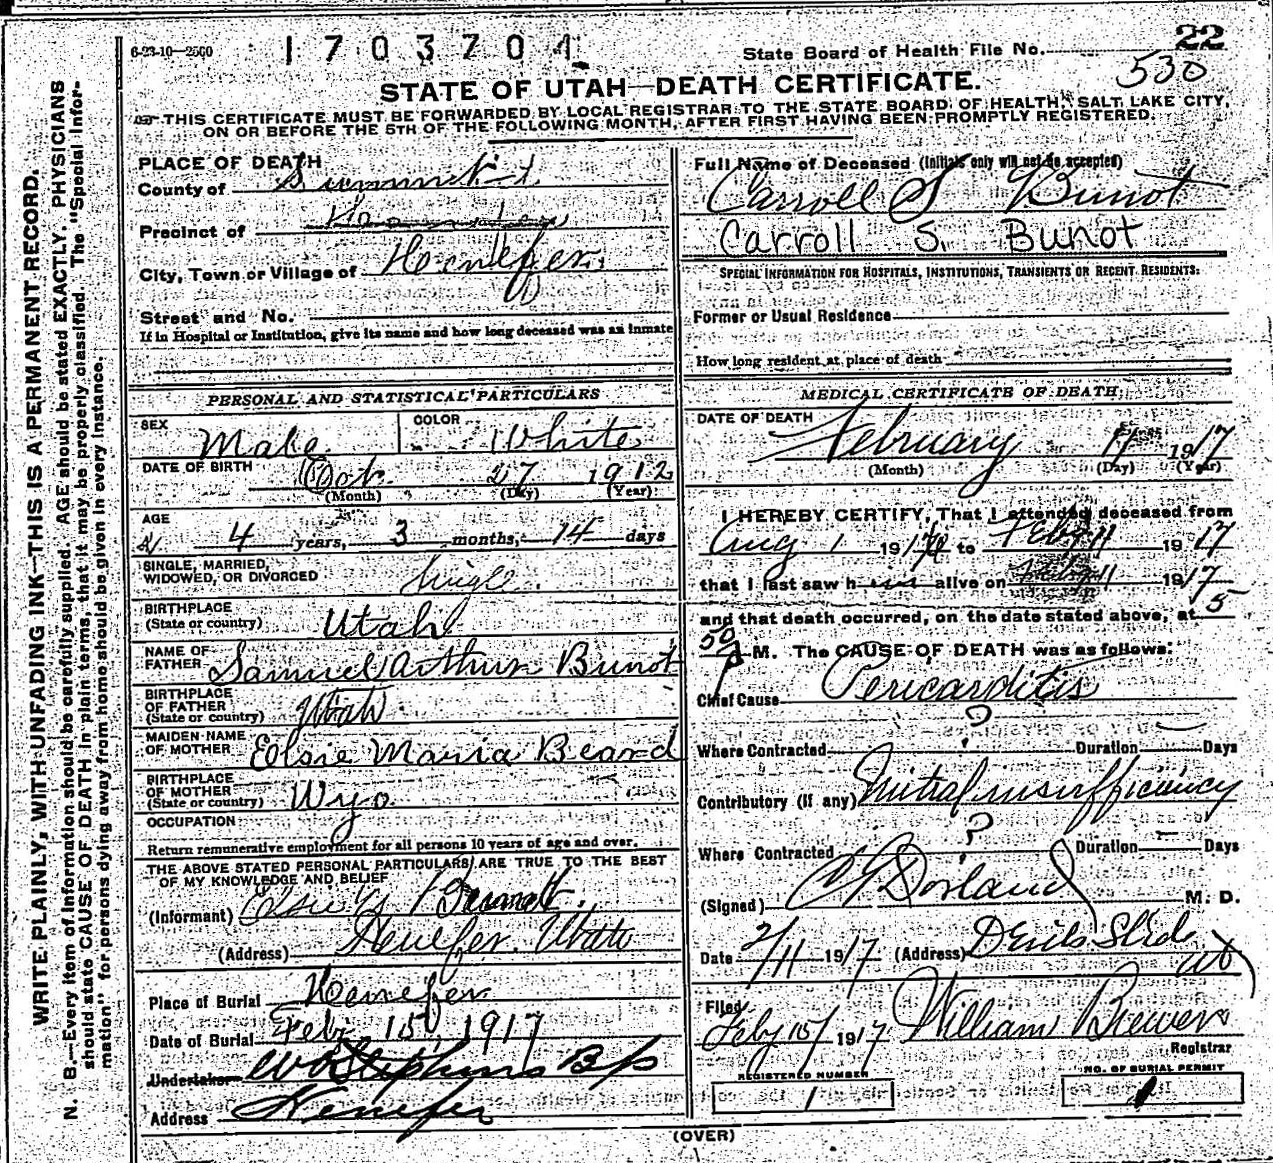 6-23-10-2500
1703704
State Board of Health File No. 22
530
STATE OF UTAH—DEATH CERTIFICATE.
THIS CERTIFICATE MUST BE FORWARDED BY LOCAL REGISTRAR TO THE STATE BOARD OF HEALTH, SALT LAKE CITY,
ON OR BEFORE THE 5TH OF THE FOLLOWING MONTH, AFTER FIRST HAVING BEEN PROMPTLY REGISTERED.
WRITE PLAINLY, WITH UNFADING INK—THIS IS A PERMANENT RECORD.
N. B.—Every item of information should be carefully supplied. AGE should be stated EXACTLY. PHYSICIANS
should state CAUSE OF DEATH in plain terms, that it may be properly classified. The "Special Infor-
mation" for persons dying away from home should be given in every instance.
PLACE OF DEATH
County of Summit
Precinct of
City, Town or Village of Henefer
Street and No.
If in Hospital or Institution, give its name and how long deceased was an inmate
PERSONAL AND STATISTICAL PARTICULARS
SEX Male COLOR White
DATE OF BIRTH Oct. 27 1912
(Month) (Day) (Year)
AGE 4 years, 3 months, 14 days
SINGLE, MARRIED,
WIDOWED, OR DIVORCED Single.
BIRTHPLACE
(State or country) Utah
NAME OF
FATHER Samuel Arthur Bunot
BIRTHPLACE
OF FATHER
(State or country) Utah
MAIDEN NAME
OF MOTHER Elsie Maria Beard
BIRTHPLACE
OF MOTHER
(State or country) Wyo
OCCUPATION
Return remunerative employment for all persons 10 years of age and over.
THE ABOVE STATED PERSONAL PARTICULARS ARE TRUE TO THE BEST
OF MY KNOWLEDGE AND BELIEF
(Informant)
(Address) Henefer Utah
Place of Burial Henefer
Date of Burial Feb 15, 1917
Undertaker W Stephens Bp
Address Henefer
Full Name of Deceased (Initials only will not be accepted)
Carroll S Bunot
Carroll S. Bunot
SPECIAL INFORMATION FOR HOSPITALS, INSTITUTIONS, TRANSIENTS OR RECENT RESIDENTS:
Former or Usual Residence
How long resident at place of death
MEDICAL CERTIFICATE OF DEATH
DATE OF DEATH
February 11 1917
(Month) (Day) (Year)
I HEREBY CERTIFY, That I attended deceased from
Aug 1 191 to Feby 11 1917
that I last saw him alive on Feby 11 1917
and that death occurred, on the date stated above, at 5
50 P M. The CAUSE OF DEATH was as follows:
Chief Cause Pericarditis
Where Contracted ? Duration — Days
Contributory (if any) Mitral insufficiency
Where Contracted ? Duration — Days
(Signed) Dorland M. D.
Date 2/11 1917 (Address) Devils Slide
Ut
Filed
Feby 15/ 1917 William Brewer
Registrar
REGISTERED NUMBER
1
NO. OF BURIAL PERMIT
1
(OVER)